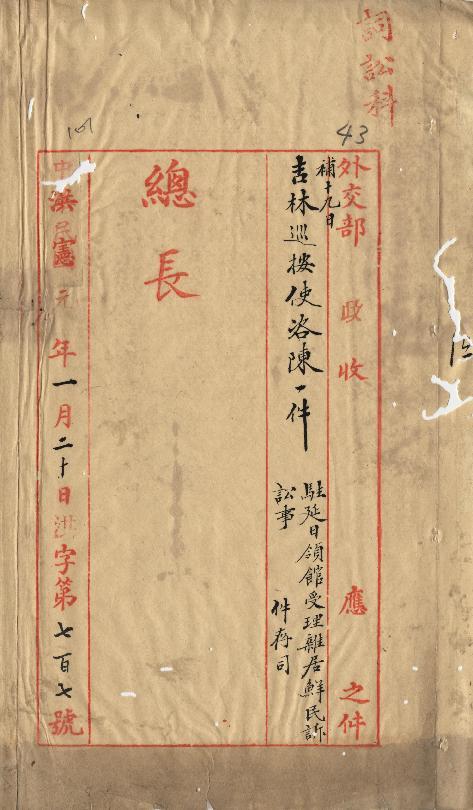 詞訟科
43
外交部 政收 應 之件
補十九日
吉林巡按使咨陳一件
駐延日領館受理雜居鮮民訴
訟事 件存司
總長
洪憲元年一月二十日洪字第七百七號